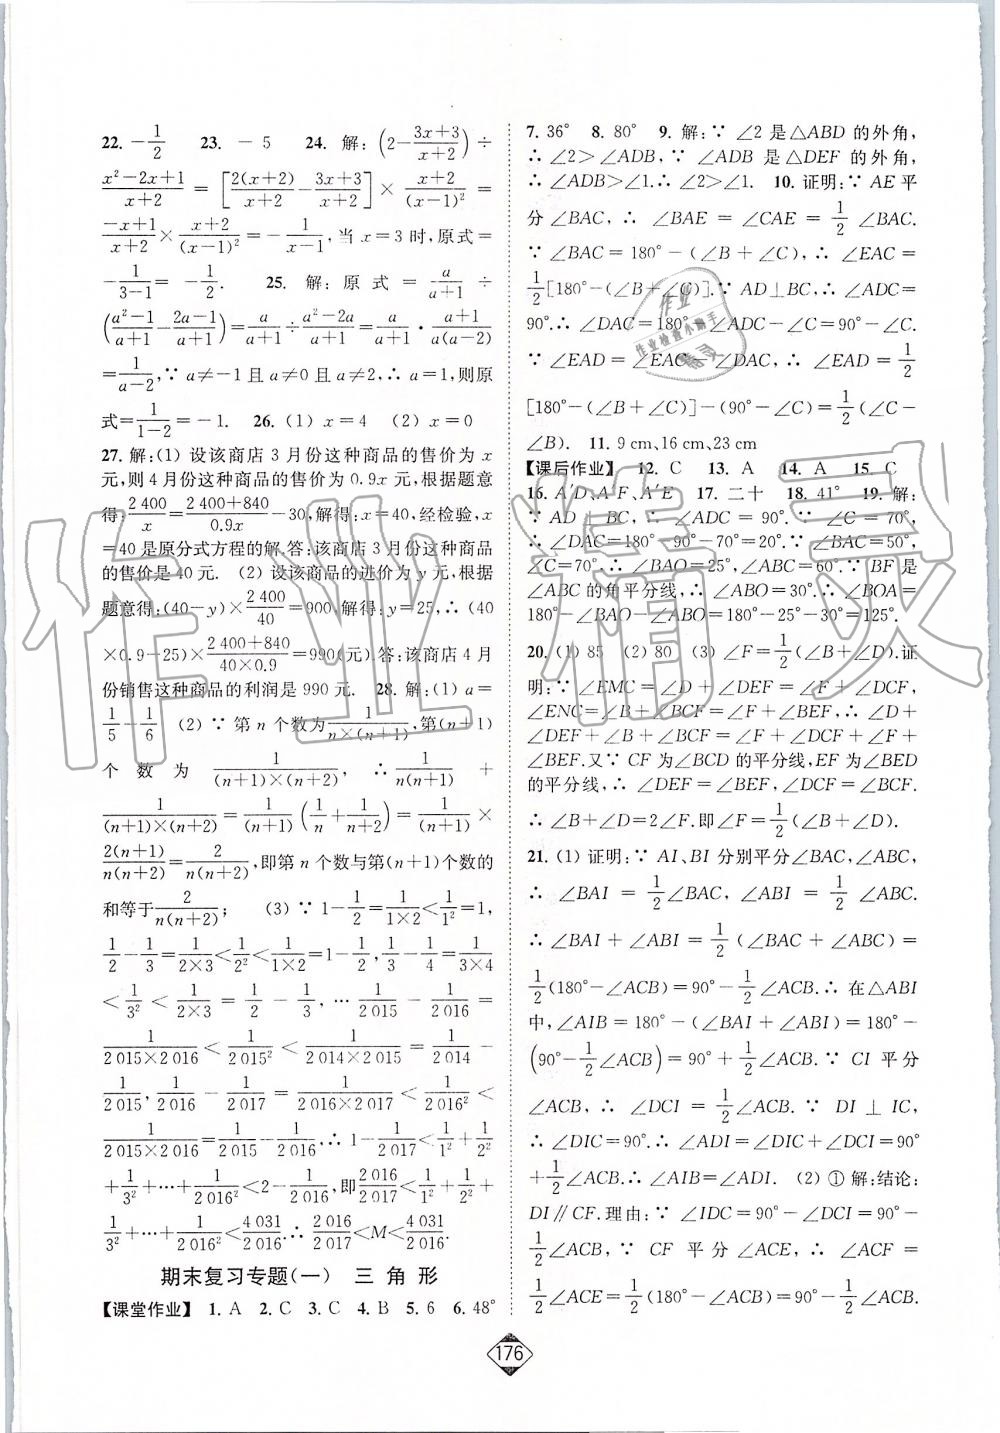 22. -1/2  23. -5  24. 解: (2-(3x+3)/(x+2)) ÷
(x²-2x+1)/(x+2) = [2(x+2)/(x+2) - (3x+3)/(x+2)] × (x+2)/(x-1)² =
(-x+1)/(x+2) × (x+2)/(x-1)² = -1/(x-1), 当 x=3 时, 原式=
-1/(3-1) = -1/2.  25. 解: 原式 = a/(a+1) ÷
((a²-1)/(a+1) - (2a-1)/(a+1)) = a/(a+1) ÷ (a²-2a)/(a+1) = a/(a+1) · (a+1)/(a(a-2)) =
1/(a-2), ∵ a≠-1 且 a≠0 且 a≠2, ∴ a=1, 则原
式=1/(1-2)=-1.  26. (1) x=4  (2) x=0
27. 解: (1) 设该商店 3 月份这种商品的售价为 x
元, 则 4 月份这种商品的售价为 0.9x 元, 根据题意
得: 2 400/x = (2 400+840)/0.9x - 30, 解得: x=40, 经检验, x
=40 是原分式方程的解. 答: 该商店 3 月份这种商品
的售价是 40 元.  (2) 设该商品的进价为 y 元, 根据
题意得: (40-y)×2 400/40=900, 解得: y=25, ∴ (40
×0.9-25)×(2 400+840)/(40×0.9)=990(元). 答: 该商店 4 月
份销售这种商品的利润是 990 元.  28. 解: (1) a=
1/5-1/6  (2) ∵ 第 n 个数为 1/(n×(n+1)), 第(n+1)
个数为 1/((n+1)×(n+2)), ∴ 1/(n(n+1)) +
1/((n+1)×(n+2)) = 1/(n+1) (1/n + 1/(n+2)) = 1/(n+1) ×
2(n+1)/(n(n+2)) = 2/(n(n+2)), 即第 n 个数与第(n+1)个数的
和等于 2/(n(n+2));  (3) ∵ 1-1/2=1/(1×2)<1/1²=1,
1/2-1/3=1/(2×3)<1/2²<1/(1×2)=1-1/2, 1/3-1/4=1/(3×4)
<1/3²<1/(2×3)=1/2-1/3, …1/2 015-1/2 016=
1/(2 015×2 016)<1/2 015²<1/(2 014×2 015)=1/2 014-
1/2 015, 1/2 016-1/2 017=1/(2 016×2 017)<1/2 016²<
1/(2 015×2 016)=1/2 015-1/2 016, ∴ 1-1/2 017<1/1²+1/2²
+1/3²+…+1/2 016²<2-1/2 016, 即2 016/2 017<1/1²+1/2²+
1/3²+…+1/2 016²<4 031/2 016. ∴ 2 016/2 017<M<4 031/2 016.
期末复习专题(一)  三 角 形
【课堂作业】 1. A  2. C  3. C  4. B  5. 6  6. 48°
7. 36°  8. 80°  9. 解: ∵ ∠2 是△ABD 的外角,
∴ ∠2>∠ADB, ∵ ∠ADB 是△DEF 的外角,
∴ ∠ADB>∠1. ∴ ∠2>∠1.  10. 证明: ∵ AE 平
分∠BAC, ∴ ∠BAE = ∠CAE = 1/2 ∠BAC.
∵ ∠BAC=180°-(∠B+∠C), ∴ ∠EAC=
1/2[180°-(∠B+∠C)]. ∵ AD⊥BC, ∴ ∠ADC=
90°. ∴ ∠DAC=180°-∠ADC-∠C=90°-∠C.
∵ ∠EAD=∠EAC-∠DAC, ∴ ∠EAD=1/2
[180°-(∠B+∠C)]-(90°-∠C)=1/2(∠C-
∠B).  11. 9 cm, 16 cm, 23 cm
【课后作业】 12. C  13. A  14. A  15. C
16. A′D、A′F、A′E  17. 二十  18. 41°  19. 解:
∵ AD⊥BC, ∴ ∠ADC=90°. ∵ ∠C=70°,
∴ ∠DAC=180°-90°-70°=20°. ∵ ∠BAC=50°,
∠C=70°, ∴ ∠BAO=25°, ∠ABC=60°. ∵ BF 是
∠ABC 的角平分线, ∴ ∠ABO=30°. ∴ ∠BOA=
180°-∠BAO-∠ABO=180°-25°-30°=125°.
20. (1) 85  (2) 80  (3) ∠F=1/2(∠B+∠D). 证
明: ∵ ∠EMC=∠D+∠DEF=∠F+∠DCF,
∠ENC=∠B+∠BCF=∠F+∠BEF, ∴ ∠D+
∠DEF+∠B+∠BCF=∠F+∠DCF+∠F+
∠BEF. 又∵ CF 为∠BCD 的平分线, EF 为∠BED
的平分线, ∴ ∠DEF=∠BEF, ∠DCF=∠BCF.
∴ ∠B+∠D=2∠F. 即∠F=1/2(∠B+∠D).
21. (1) 证明: ∵ AI、BI 分别平分∠BAC, ∠ABC,
∴ ∠BAI = 1/2∠BAC, ∠ABI = 1/2 ∠ABC.
∴ ∠BAI+∠ABI=1/2(∠BAC+∠ABC)=
1/2(180°-∠ACB)=90°-1/2∠ACB. ∴ 在△ABI
中, ∠AIB=180°-(∠BAI+∠ABI)=180°-
(90°-1/2∠ACB)=90°+1/2∠ACB. ∵ CI 平分
∠ACB, ∴ ∠DCI=1/2∠ACB. ∵ DI⊥IC,
∴ ∠DIC=90°. ∴ ∠ADI=∠DIC+∠DCI=90°
+1/2∠ACB. ∴ ∠AIB=∠ADI.  (2) ① 解: 结论:
DI∥CF. 理由: ∵ ∠IDC=90°-∠DCI=90°-
1/2∠ACB, ∵ CF 平分∠ACE, ∴ ∠ACF=
1/2∠ACE=1/2(180°-∠ACB)=90°-1/2∠ACB.
176
作业精灵
作业
作业检查小助手